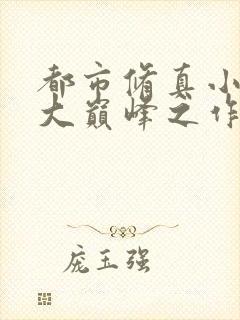 都市脩真小
大巅峰之作
庞玉强